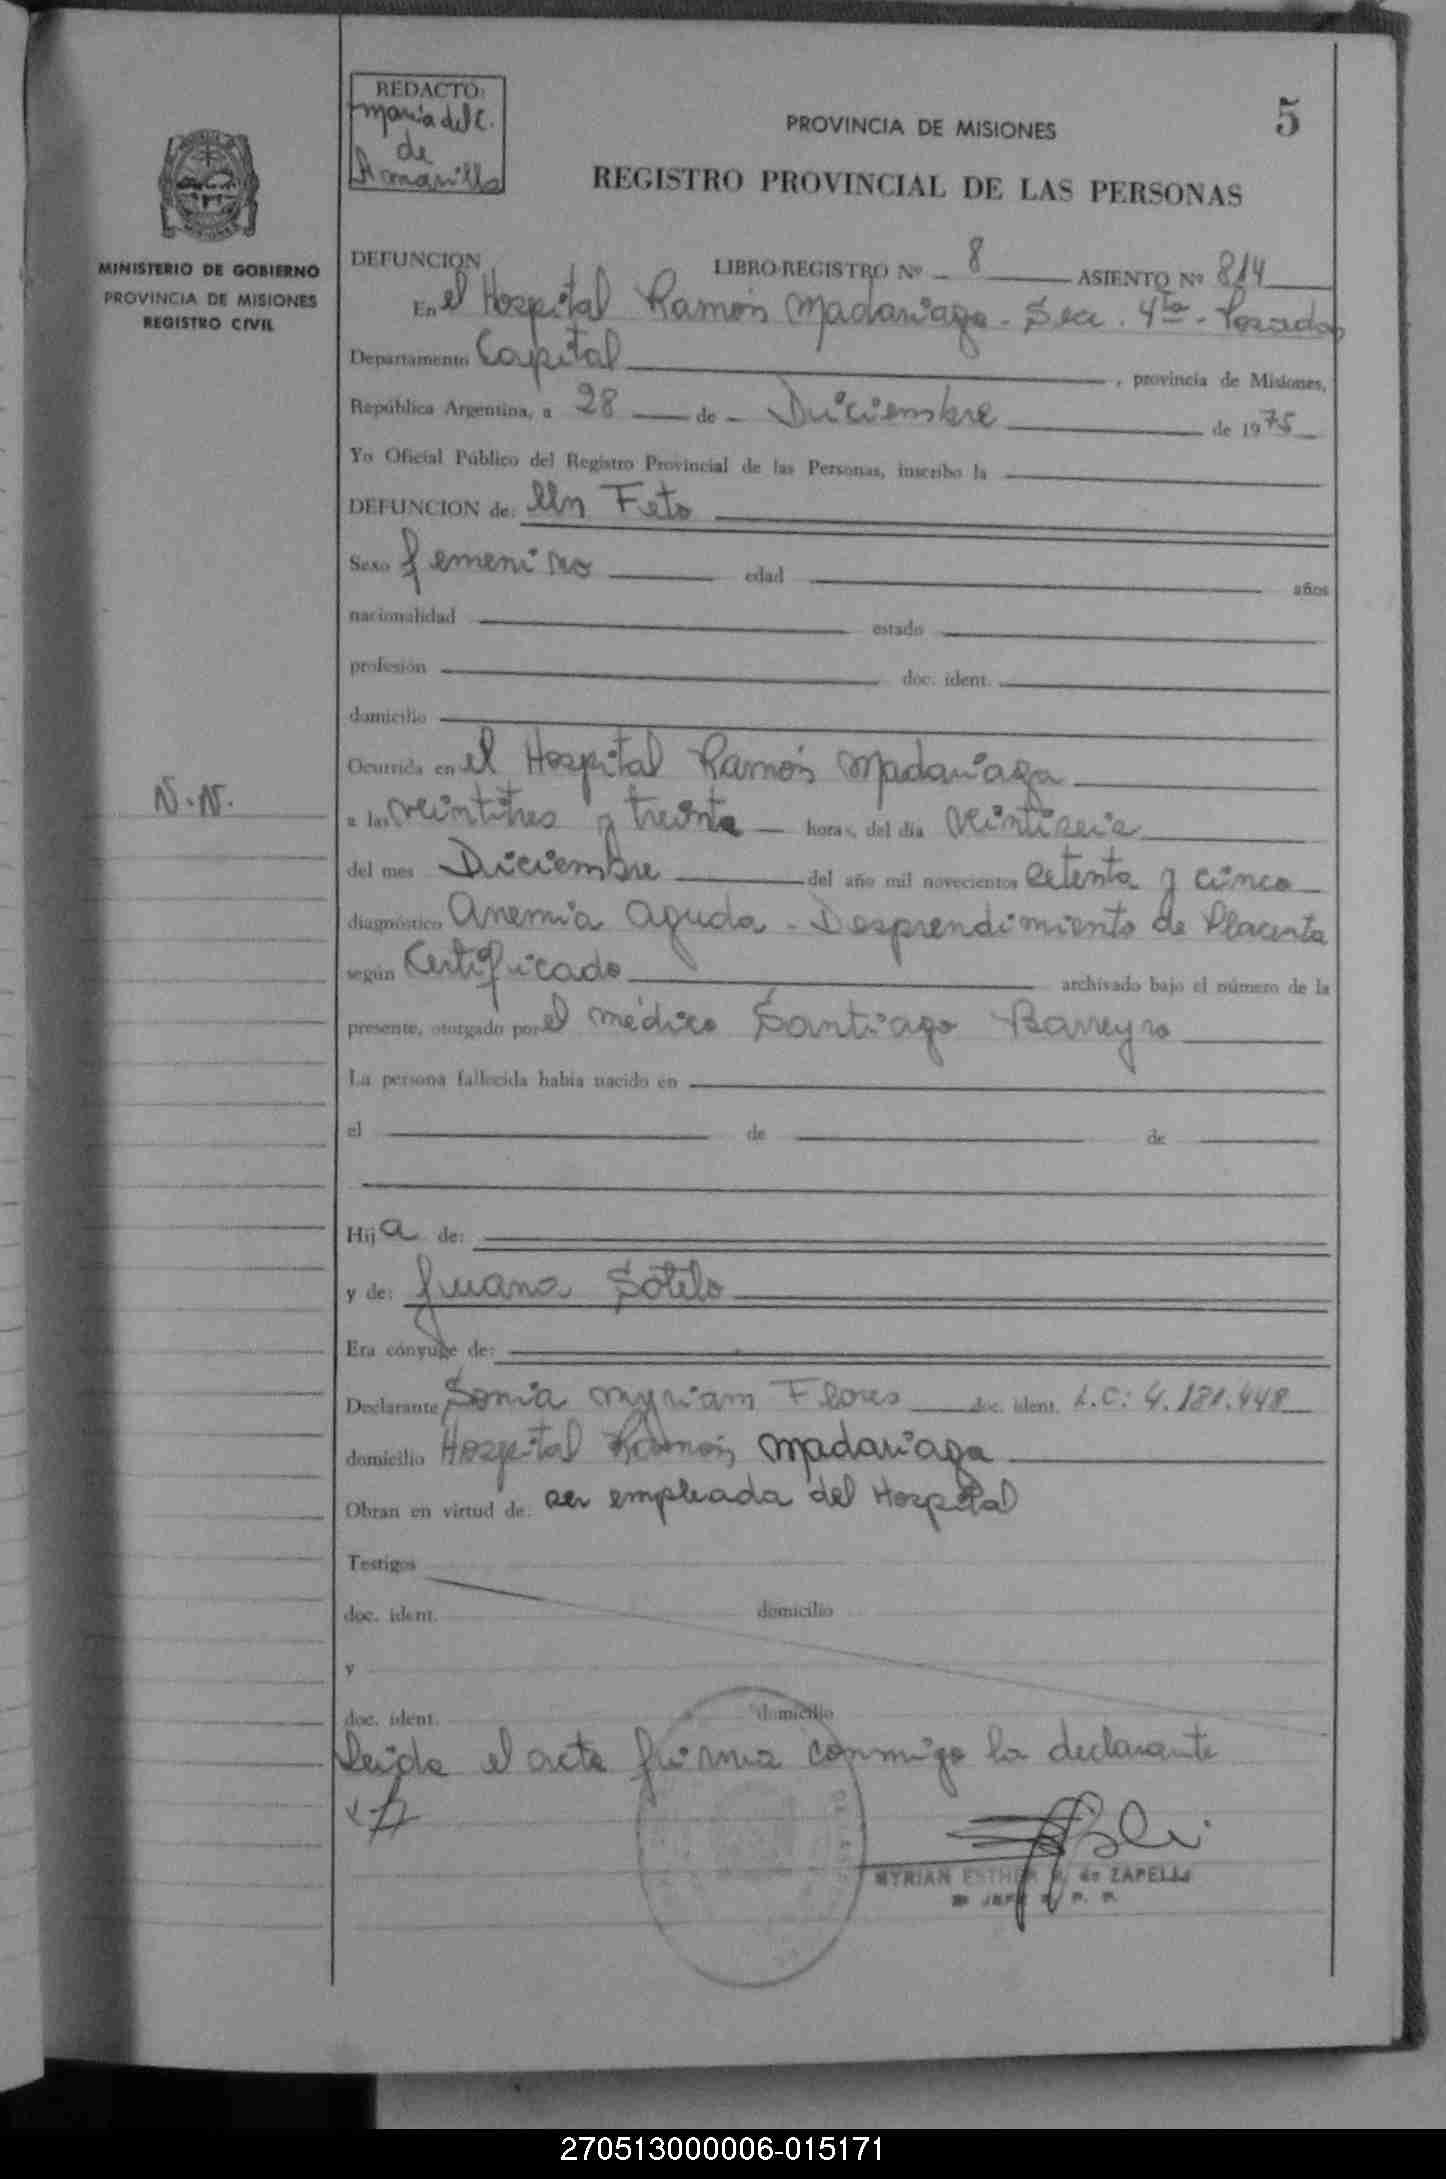 REDACTO:
María del C.
de
Amarilla
5
PROVINCIA DE MISIONES
REGISTRO PROVINCIAL DE LAS PERSONAS
MINISTERIO DE GOBIERNO
PROVINCIA DE MISIONES
REGISTRO CIVIL
DEFUNCION LIBRO-REGISTRO Nº 8 ASIENTO Nº 814
En el Hospital Ramón Madariaga - Sec. 4ta - Posadas
Departamento Capital, provincia de Misiones,
República Argentina, a 28 de Diciembre de 1975
Yo Oficial Público del Registro Provincial de las Personas, inscribo la
DEFUNCION de: Un Feto
Sexo femenino edad años
nacionalidad estado
profesión doc. ident.
domicilio
Ocurrida en el Hospital Ramón Madariaga
N.N.
a las veintitres y treinta horas, del día veintiseis
del mes Diciembre del año mil novecientos setenta y cinco
diagnóstico Anemia aguda - Desprendimiento de Placenta
según Certificado archivado bajo el número de la
presente, otorgado por el médico Santiago Barreyro
La persona fallecida había nacido en
el de de
Hija de:
y de: Juana Sotelo
Era cónyuge de:
Declarante Sonia Myriam Flores doc. ident. L.C: 4.181.448
domicilio Hospital Ramón Madariaga
Obran en virtud de: ser empleada del Hospital
Testigos
doc. ident. domicilio
y
doc. ident. domicilio
Leida el acta firma conmigo la declarante
MYRIAN ESTHER de ZAPELLI
270513000006-015171